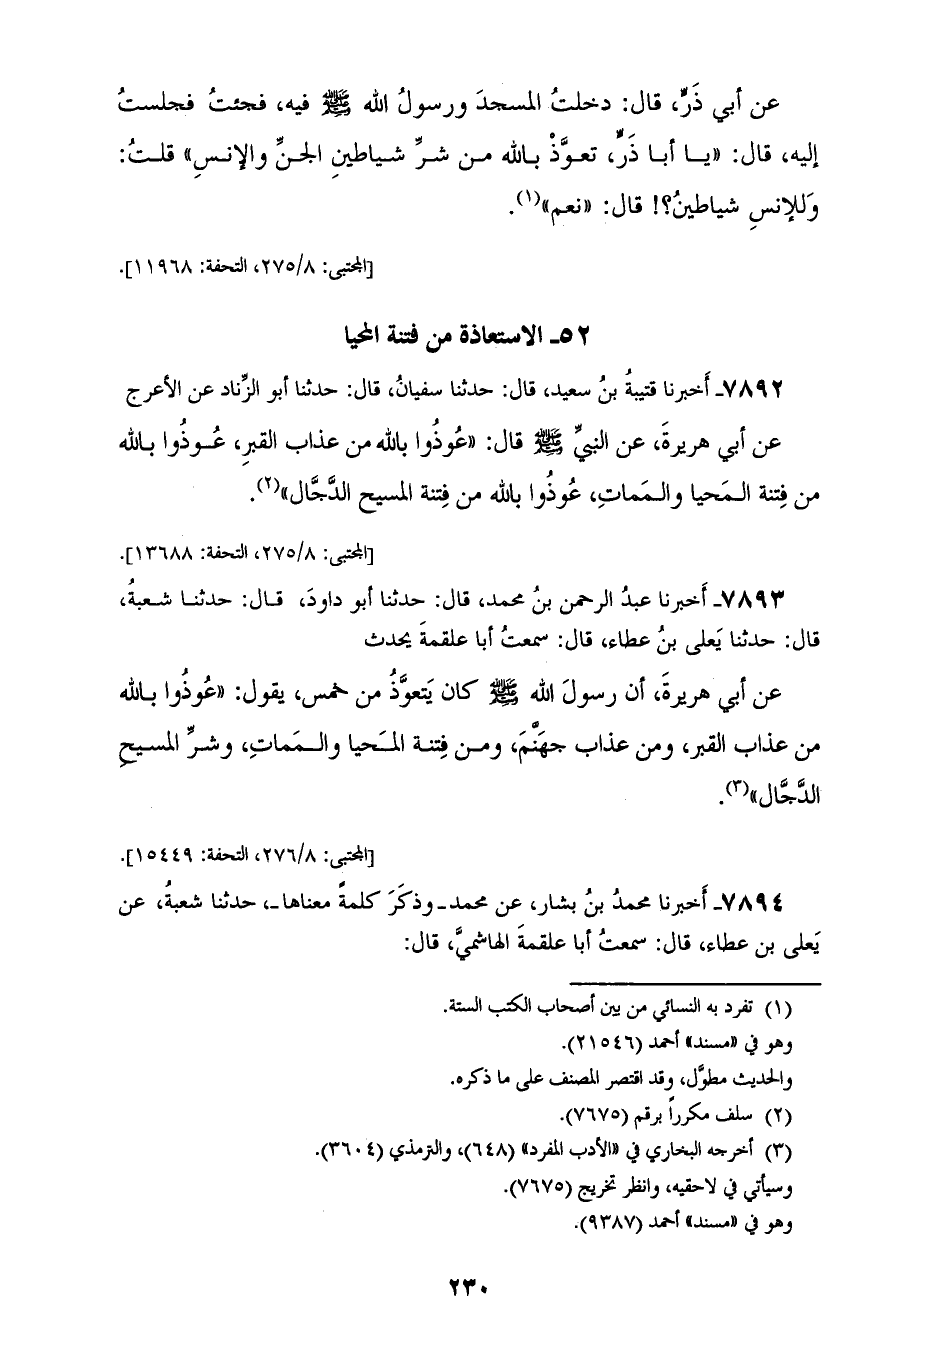 عن أبي ذَرٍّ، قال: دخلتُ المسجدَ ورسولُ الله ﷺ فيه، فجئتُ فجلستُ
إليه، قال: «يا أبا ذَرٍّ، تعوَّذْ بالله من شرِّ شياطينِ الجنِّ والإنسِ» قلتُ:
وَللإنسِ شياطينُ؟! قال: «نعم»(١).
[المجتبى: ٢٧٥/٨، التحفة: ١١٩٦٨].
٥٢ـ الاستعاذة من فتنة المحيا
٧٨٩٢ـ أَخبرنا قتيبةُ بنُ سعيد، قال: حدثنا سفيانُ، قال: حدثنا أبو الزِّناد عن الأعرج
عن أبي هريرةَ، عن النبيِّ ﷺ قال: «عُوذُوا بالله من عذاب القبرِ، عُوذُوا بالله
من فِتنة المَحيا والمَماتِ، عُوذُوا بالله من فِتنة المسيح الدَّجَّال»(٢).
[المجتبى: ٢٧٥/٨، التحفة: ١٣٦٨٨].
٧٨٩٣ـ أَخبرنا عبدُ الرحمن بنُ محمد، قال: حدثنا أبو داودَ، قال: حدثنا شعبةُ،
قال: حدثنا يَعلى بنُ عطاء، قال: سمعتُ أبا علقمةَ يحدث
عن أبي هريرةَ، أن رسولَ الله ﷺ كان يَتعوَّذُ من خمس، يقول: «عُوذُوا بالله
من عذاب القبر، ومن عذاب جهَنَّمَ، ومن فِتنة المَحيا والمَماتِ، وشرِّ المسيحِ
الدَّجَّال»(٣).
[المجتبى: ٢٧٦/٨، التحفة: ١٥٤٤٩].
٧٨٩٤ـ أَخبرنا محمدُ بنُ بشار، عن محمد ـ وذكَرَ كلمةً معناها ـ، حدثنا شعبةُ، عن
يَعلى بن عطاء، قال: سمعتُ أبا علقمةَ الهاشميَّ، قال:
(١) تفرد به النسائي من بين أصحاب الكتب الستة.
وهو في «مسند» أحمد (٢١٥٤٦).
والحديث مطوَّل، وقد اقتصر المصنف على ما ذكره.
(٢) سلف مكرراً برقم (٧٦٧٥).
(٣) أخرجه البخاري في «الأدب المفرد» (٦٤٨)، والترمذي (٣٦٠٤).
وسيأتي في لاحقيه، وانظر تخريج (٧٦٧٥).
وهو في «مسند» أحمد (٩٣٨٧).
٢٣٠